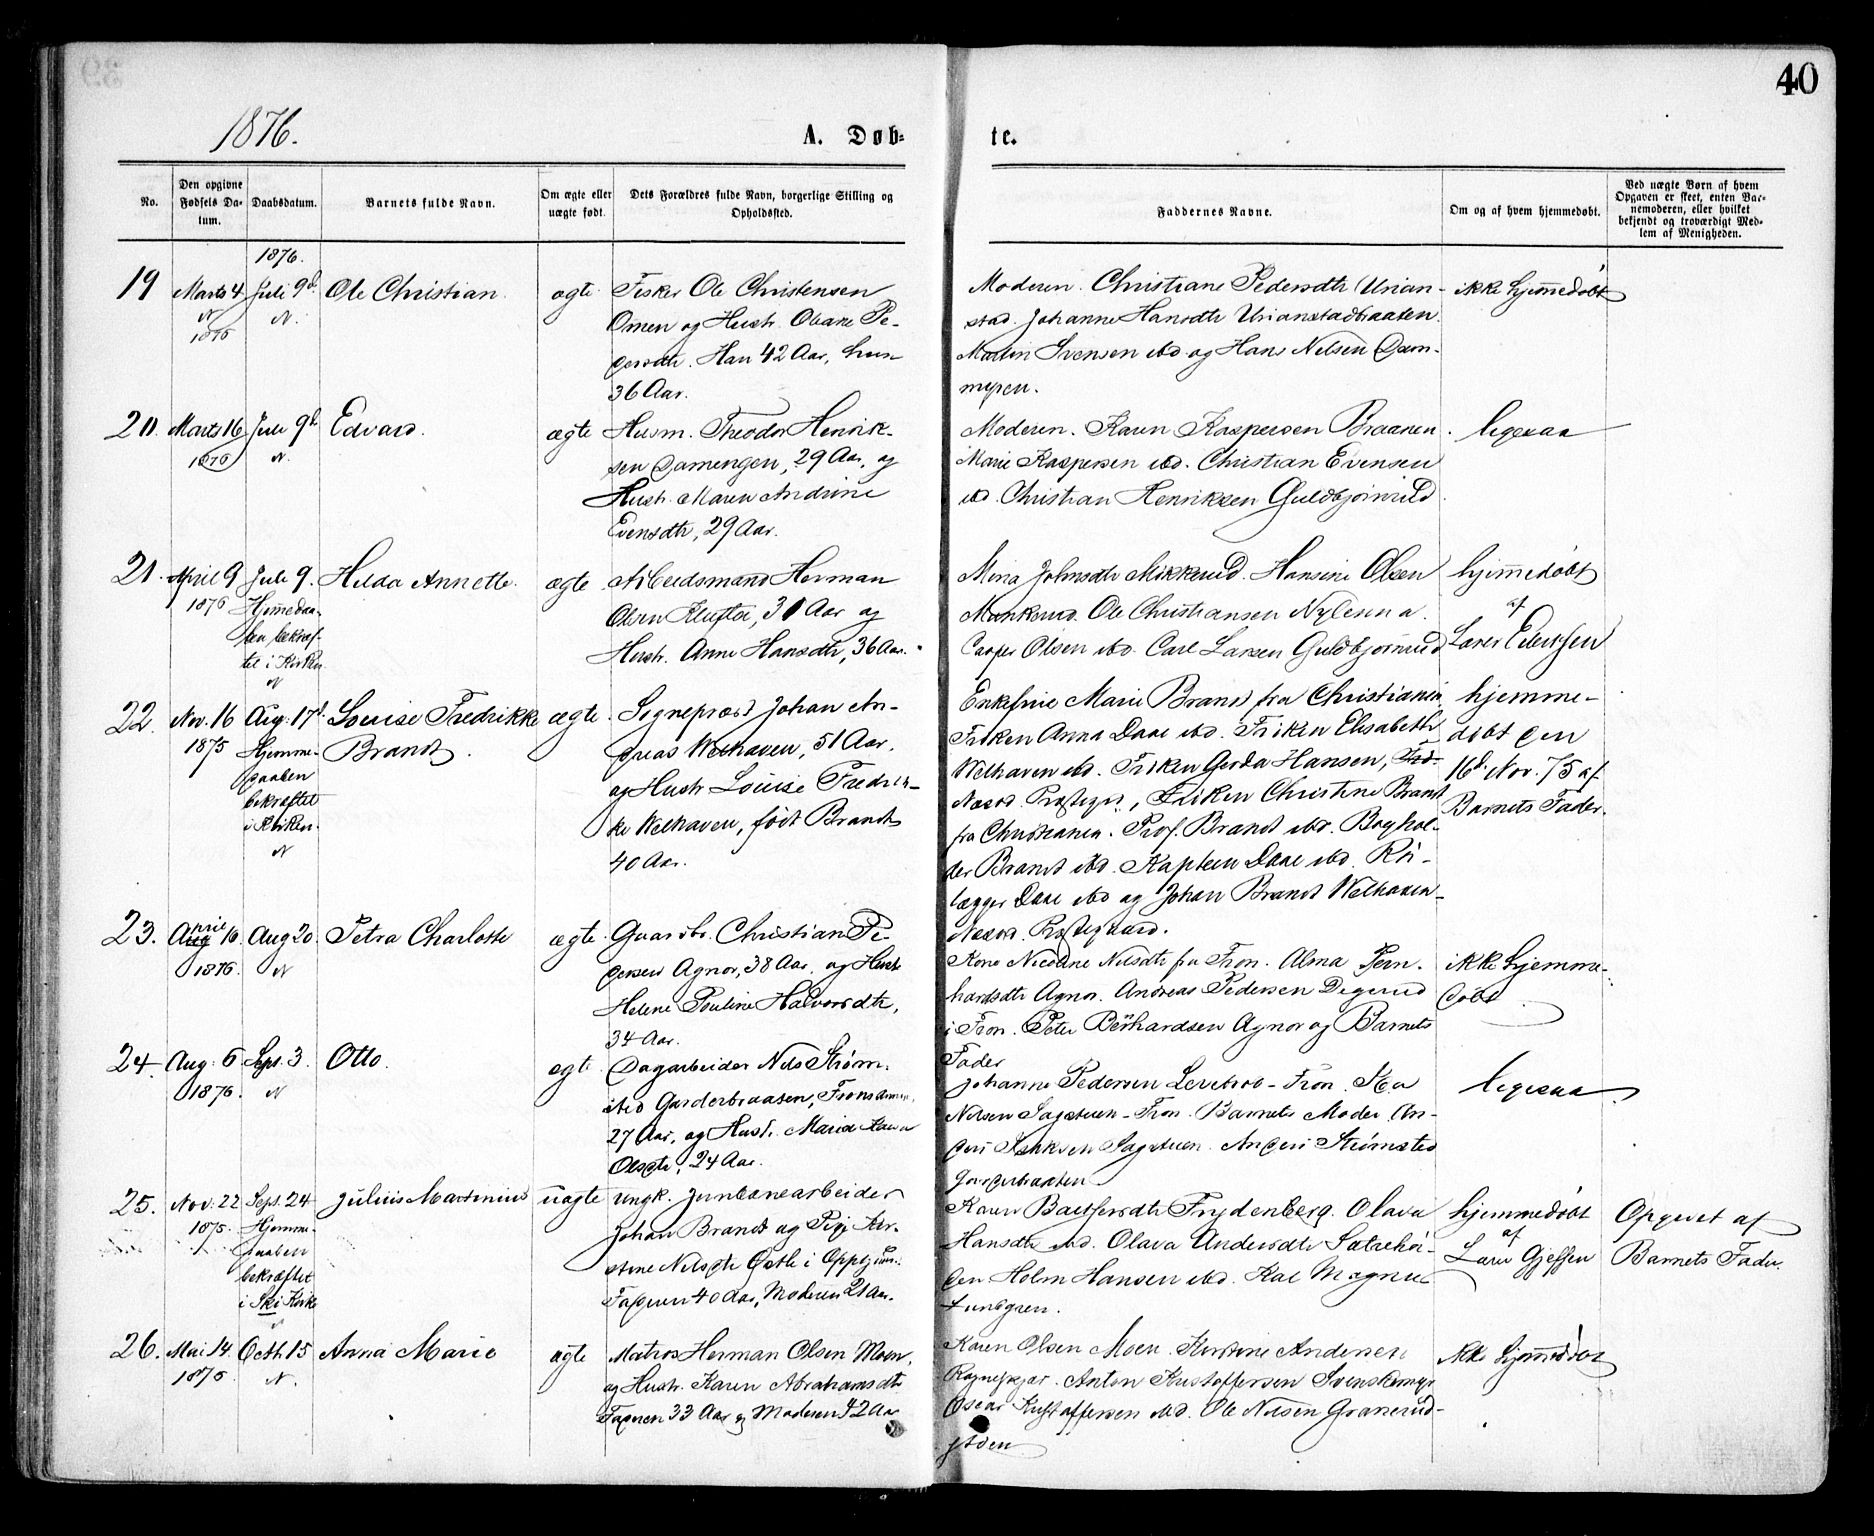 40
1876.
A. Døb-
te.
No.
Den opgivne
Fødsels Da-
tum.
Daabsdatum.
Barnets fulde Navn.
Om ægte eller
uægte født.
Dets Forældres fulde Navn, borgerlige Stilling og
Opholdssted.
Faddernes Navne.
Om og af hvem hjemmedøbt.
Ved uægte Børn af hvem
Opgaven er skeet, enten Bar-
nemoderen, eller hvilket
bekjendt og troværdigt Med-
lem af Menigheden.
1876.
19
Marts 4
N
1876
Juli 9d.
N.
Ole Christian.
ægte
Fisker Ole Christensen
og Hustr. Oliane Pe-
dersdtr. Han 42 Aar, hun
36 Aar.
Moderen. Christiane Pedersdtr Urian-
stad. Johanne Hansdtr Urianstadbraaten.
Martin Svensen ibd. og Hans Nilsen Dam-
myren.
ikke hjemmedøbt
20.
Marts 16
1876
Juli 9d.
N.
Edvard.
ægte
Husm. Theodor Henrik-
sen Damengen, 29 Aar, og
Hustr. Maren Andrine
Evensdtr, 29 Aar.
Moderen. Karen Kaspersen Braanen.
Marie Kaspersen ibd. Christian Evensen
ibd. Christian Henriksen Guldbjørnrud.
ligesaa
21.
April 9
1876
Juli 9.
Hjemedaa-
ben bekræf-
tet i Kirken
N
Hilda Annette.
ægte
Arbeidsmand Herman
Olsen Klufta, 31 Aar og
Hustr. Anne Hansdtr, 36 Aar.
Mina Johnsdtr Mikkerud. Hansine Olsen
Ole Christiansen
Casper Olsen ibd. Carl Larsen Guldbjørnrud
hjemmedøbt
af
Lars
22.
Nov. 16
1875
Aug: 17d.
Hjemme-
daaben
bekræftet
i Kirken.
N
Louise Fredrikke
Brandt.
ægte.
Sognepræst Johan An-
dreas Welhaven, 51 Aar.
og Hustr Louise Fredrik-
ke Welhaven, født Brandt
40 Aar.
Enkefrue Marie Brandt fra Christiania
Frøken Anna Daae ibd. Frøken Elisabeth
Welhaven ibd. Frøken Gerda Hansen,
Næsod. Præstegd., Frøken Christine Brandt
fra Christiania. Prof. Brandt ibd. Boghol-
der Brandt ibd. Kaptein Daae ibd. Rør-
lægger Daae ibd og Johan Brandt Welhaven
Næsod. Præstegaard.
hjemme-
døbt den
16d. Nov. 75 af
Barnets Fader.
23.
April
Aug 16.
1876.
Aug 20.
N
Petra Charlotte
ægte.
Gaardbr. Christian Pe-
dersen Agnor, 38 Aar. og Hustr
Helene Pouline Halvorsdtr,
34 Aar.
Kone Nicoline Nilsdtr fra Fron. Alma Bern-
hardsdtr Agnor. Andreas Pedersen Degerud
i Fron. Peter Bernhardsen Agnor og Barnets
Fader
ikke hjemme-
døbt
24.
Aug: 6
1876.
Sept. 3.
N
Otto.
ægte
Dagarbeider Nils Strøm-
sted Garderbraaten,
27 Aar, og Hust. Maria
Olsdtr, 24 Aar.
Johanne Pedersen
Nilsen Sagstuen - Fron. Barnets Moder. An-
Sagstuen. Anders Strømsted
Garderbraaten
ligesaa
25.
Nov. 22
1875.
Sept. 24
Hjemme-
daaben
bekræftet
i Ski Kirke
Julius Martinius
uægte
Ungk. Jernbanearbeider
Johan Brandt og Pige Ker-
stine Nilsdtr
Faderen 40 Aar, Moderen 21 Aar.
Karen Frydenberg. Olava
Hansdtr ibd. Olava Andersdtr Sætrehøi-
den Holm Hansen ibd. Karl Magnus
Lundgren.
hjemmedøbt
af
Lars Gjessen
Opgivet af
Barnets Fader.
26.
Mai 14.
1876.
Octb 15
N.
Anna Marie
ægte
Matros Herman Olsen Moen,
og Hustr. Karen Abrahamsdtr
Faderen 33 Aar og Moderen 42 Aar
Karen Olsen Moen. Kirstine Andersen
Anton Kristoffersen
Oscar Kristoffersen ibd. Ole Nilsen
ikke hjemmedøbt